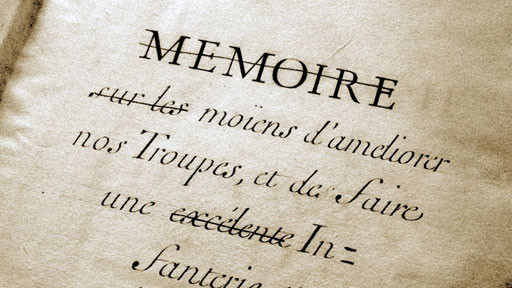 MEMOIRE
sur les moïens d'ameliorer
nos Troupes, et de faire
une excélente In=
fanterie